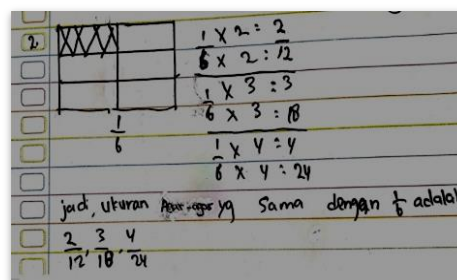 2.
1/6
1 × 2 = 2
6 × 2 = 12
1 × 3 = 3
6 × 3 = 18
1 × 4 = 4
6 × 4 = 24
jadi, ukuran Agar-agar yg sama dengan 1/6 adalah
2/12, 3/18, 4/24